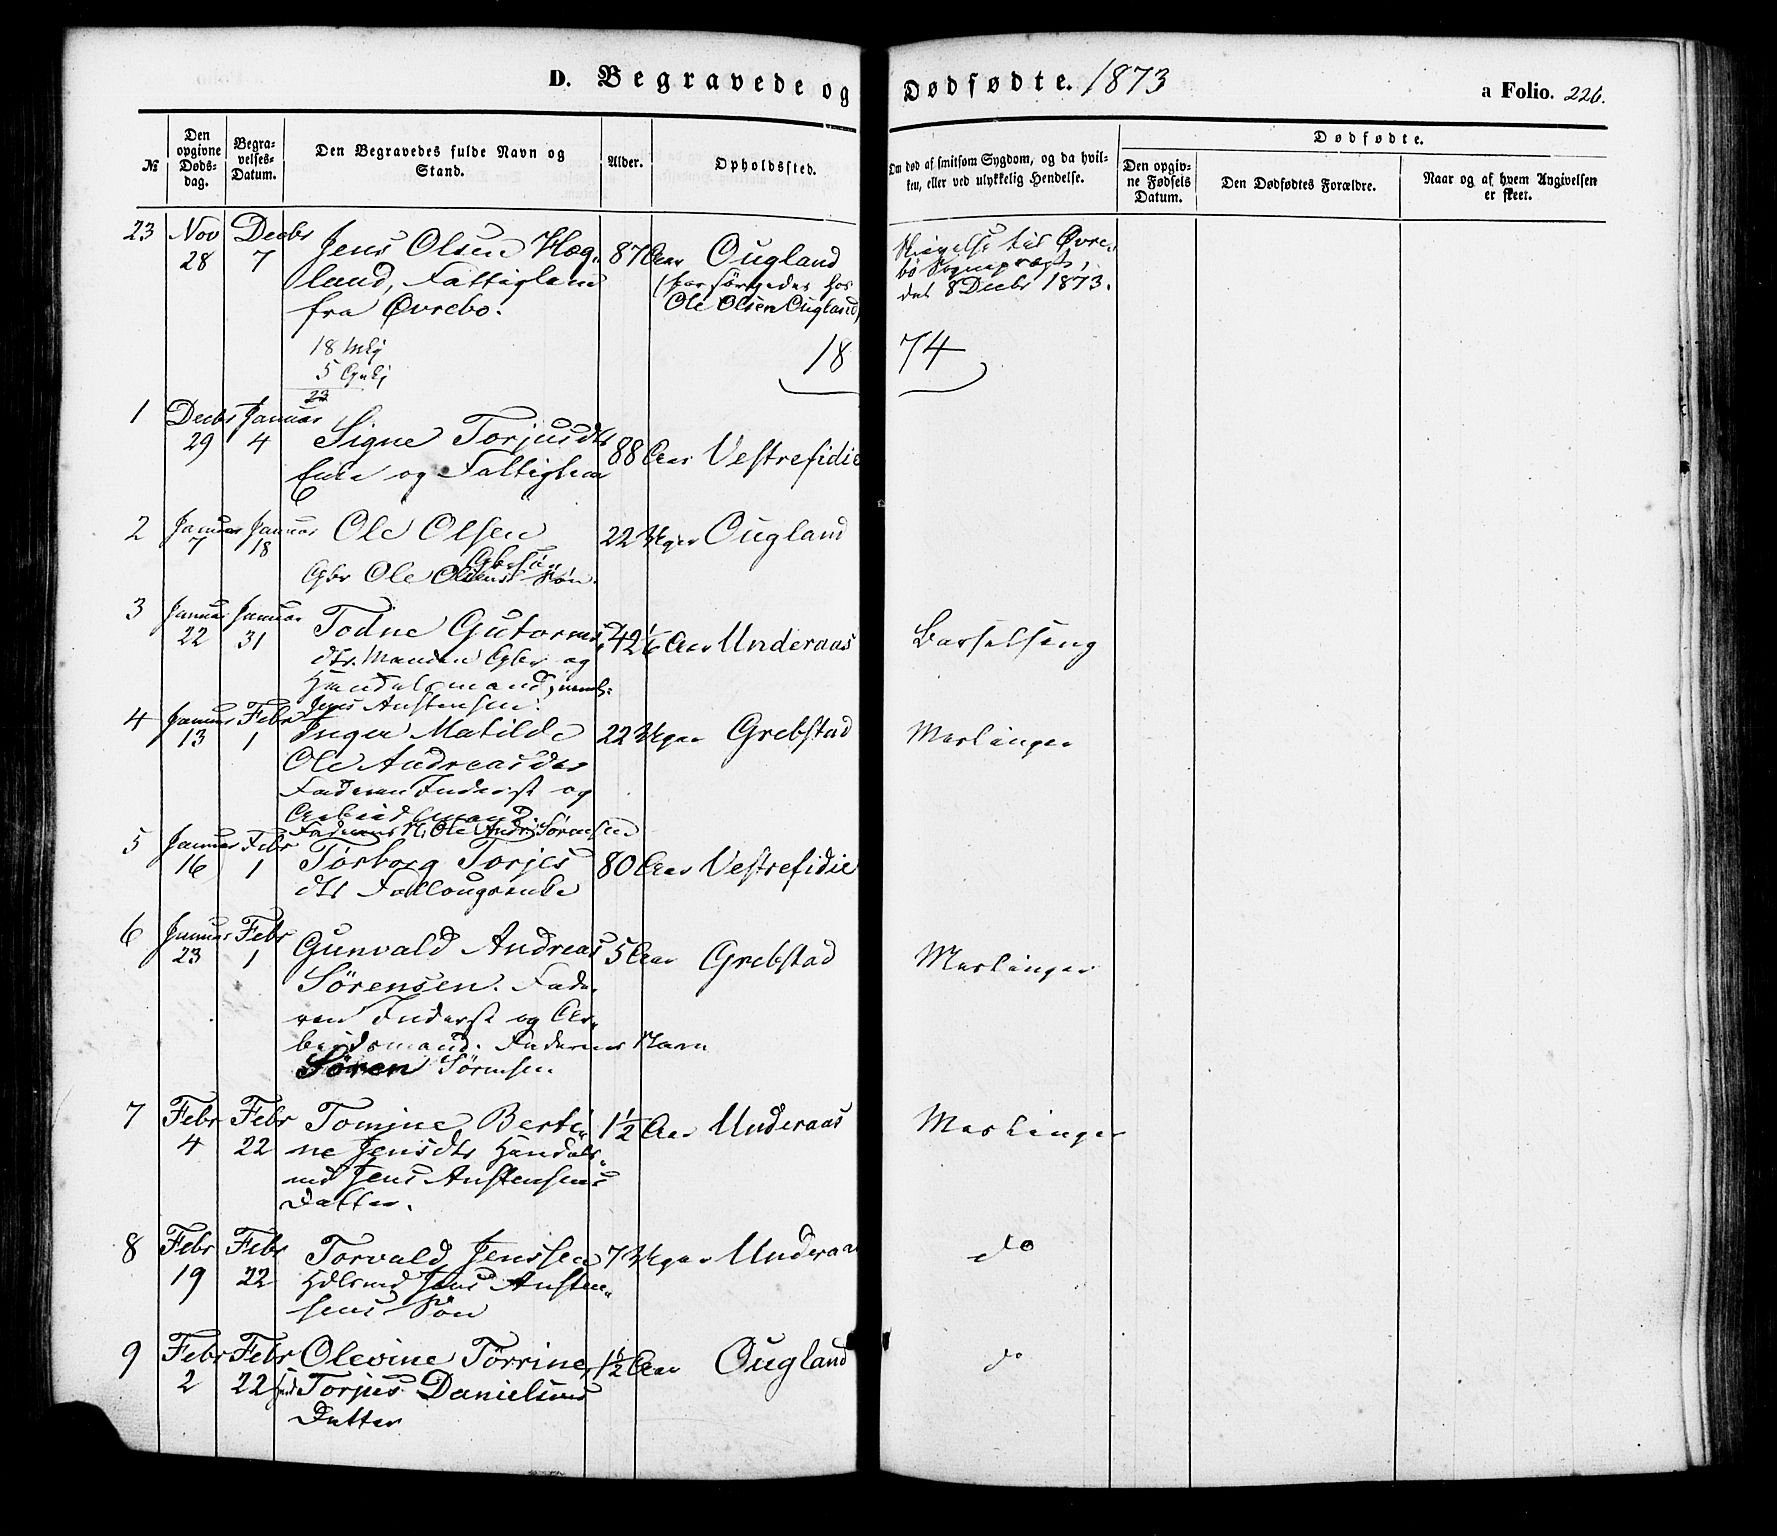 D. Begravede og Dødfødte. 1873
a Folio. 226.
№
Den opgivne Døds-dag.
Begra-velses-Datum.
Den Begravedes fulde Navn og Stand.
Alder.
Opholdssted.
Om død af smitsom Sygdom, og da hvil-ken, eller ved ulykkelig Hendelse.
Dødfødte.
Den opgiv-ne Fødsels Datum.
Den Dødfødtes Forældre.
Naar og af hvem Angivelsen er skeet.
23 Nov 28 Decbr 7 Jens Olsen Hæg-
land, Fattiglem
fra Øvrebo.
87 Aar Ougland
(forsørgedes hos
Ole Olsen Ougland)
til Øvre-
bø Sognepræst,
det 8 Decbr 1873.
18 Mkj
5 Qvkj
23
18 74
1 Decbr 29 Januar 4 Signe Torjusdtr
Enke og Fattiglem
88 Aar Vestrefidie
2 Januar 7 Januar 18 Ole Olsen
Gbr Ole Olsens Søn.
22 Uger Ougland
3 Januar 22 Januar 31 Todne Gutorms
dtr. Manden Gbr og
Handelsmand,
Jens Anstensen.
42 1/6 Aar Underaas Barselseng
4 Januar 13 Febr 1 Inger Matilde
Ole Andreasdtr
Faderen Inderst og
Arbeidsmand
Faderens N. Ole Andr. Sørensen
22 Uger Grebstad Meslinger
5 Januar 16 Febr 1 Torborg Torjes
dtr Follougsenke
80 Aar Vestrefidie
6 Januar 23 Febr 1 Gunvald Andreas
Sørensen. Fade-
ren Inderst og Ar-
beidsmand. Faderens Navn
Søren Sørensen
5 Aar Grebstad Meslinger
7 Febr 4 Febr 22 Tomine Berti-
ne Jensdtr Handels-
md Jens Anstensens
Datter.
1 1/2 Aar Underaas Meslinger
8 Febr 19 Febr 22 Torvald Jenssen
Hdlsmd Jens Ansten-
sens Søn
7 Uger Underaa do
9 Febr 2 Febr 22 Olevine Tørrine,
Torjus Danielsens
Datter
1 1/2 Aar Ougland do